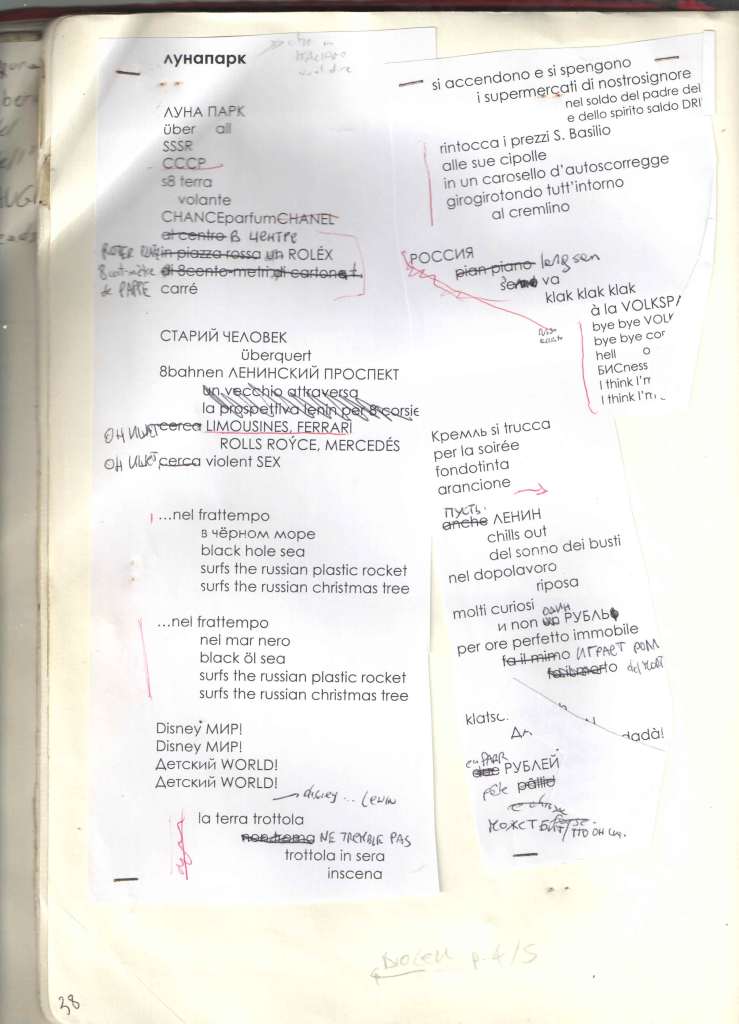 лунапарк
ЛУНА ПАРК
über all
SSSR
СССР
s8 terra
volante
CHANCEparfumCHANEL
al centro В ЦЕНТРЕ
in piazza rossa un ROLÉX
8cent-mètre di 8cento metri di cartone
de PAPPE carré
СТАРИЙ ЧЕЛОВЕК
überquert
8bahnen ЛЕНИНСКИЙ ПРОСПЕКТ
un vecchio attraversa
la prospettiva lenin per 8 corsie
ОН ИЩЕТ cerca LIMOUSINES, FERRARI
ROLLS ROÝCE, MERCEDÉS
ОН ИЩЕТ cerca violent SEX
...nel frattempo
в чёрном море
black hole sea
surfs the russian plastic rocket
surfs the russian christmas tree
...nel frattempo
nel mar nero
black öl sea
surfs the russian plastic rocket
surfs the russian christmas tree
Disney МИР!
Disney МИР!
Детский WORLD!
Детский WORLD!
disney ... Lenin
la terra trottola
non trema NE TREMBLE PAS
trottola in sera
inscena
si accendono e si spengono
i supermercati di nostrosignore
nel soldo del padre del
e dello spirito saldo DRI
rintocca i prezzi S. Basilio
alle sue cipolle
in un carosello d'autoscorregge
girogirotondo tutt'intorno
al cremlino
РОССИЯ
pian piano langsam
va
klak klak klak
à la VOLKSP
bye bye VOL
bye bye cor
hell o
БИСness
I think I'm
I think I'm
Кремль si trucca
per la soirée
fondotinta
arancione
ПУСТЬ
anche ЛЕНИН
chills out
del sonno dei busti
nel dopolavoro
riposa
molti curiosi один
и non un РУБЛЬ
per ore perfetto immobile
fa il mimo ИГРАЕТ РОЛ
fa il morto del
klatsc.
dadà!
due РУБЛЕЙ
pâle pallid
МОЖЕТ БИТ/
p. 4/5
38